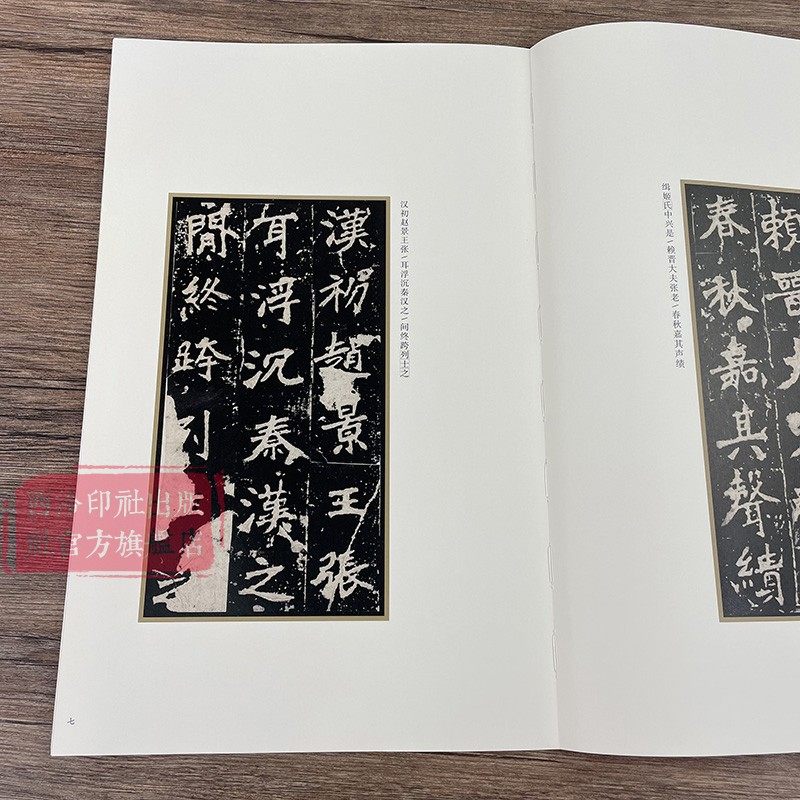 缉姬氏中兴是/赖晋大夫张老/春秋嘉其声绩
賴晉大
春秋嘉其聲績
汉初赵景王张/耳浮沉秦汉之/间终跨列土之
漢初趙景王張
耳浮沉秦漢之
間終跨列之
七
西泠印社出版
社官方旗艦店